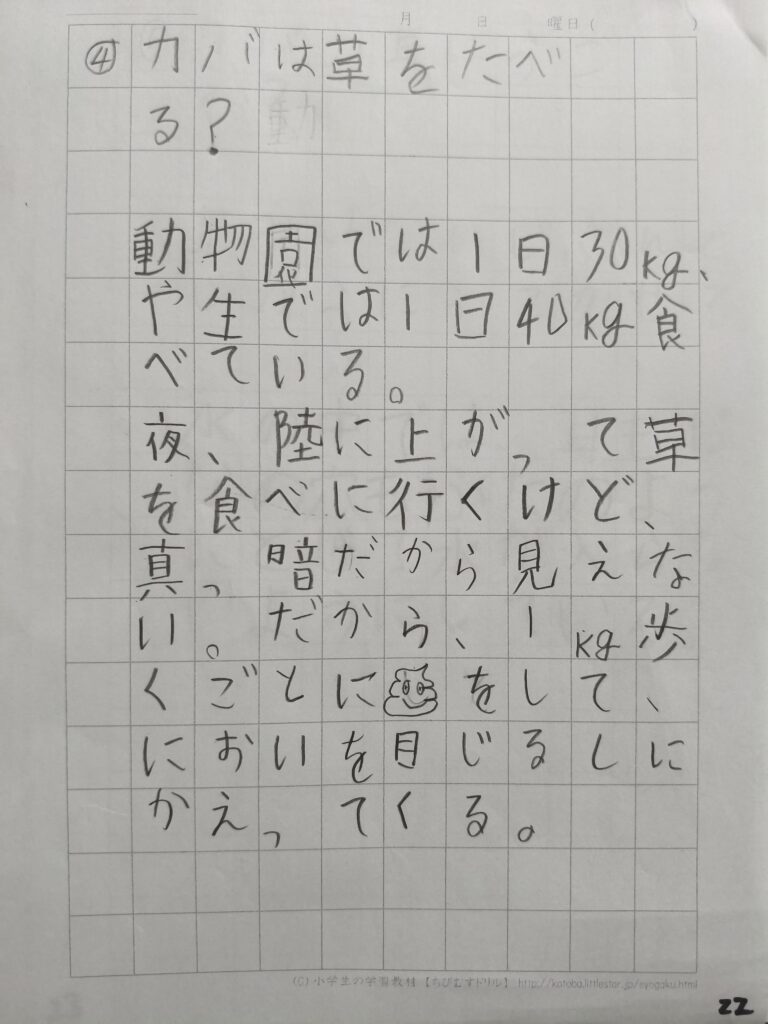 月 日 曜日( )
④カバは草をたべ
る?
動物園では1日30kg、
や生では1日40kg食
べている。
夜、陸に上がって草
を食べに行くけど、
真っ暗だから見えな
い。だから、1kg歩
くごとに💩をして、
においを目じるしに
かえってくる。
(C)小学生の学習教材【ちびむすドリル】 http://kotoba.littlestar.jp/syogaku.html
22